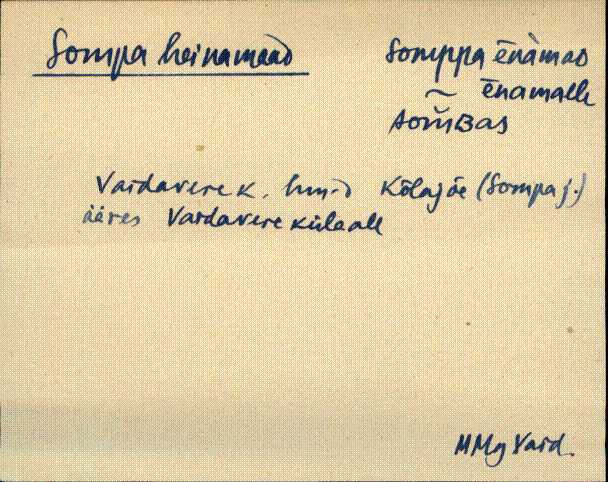 Sompa heinamaad
Somppa ēnàmao
~ ēnamalle
som̆Bas
Vardavere k. hm-d Kõlajõe (Sompa j.)
ääres Vardavere küla all
MMg Vard.